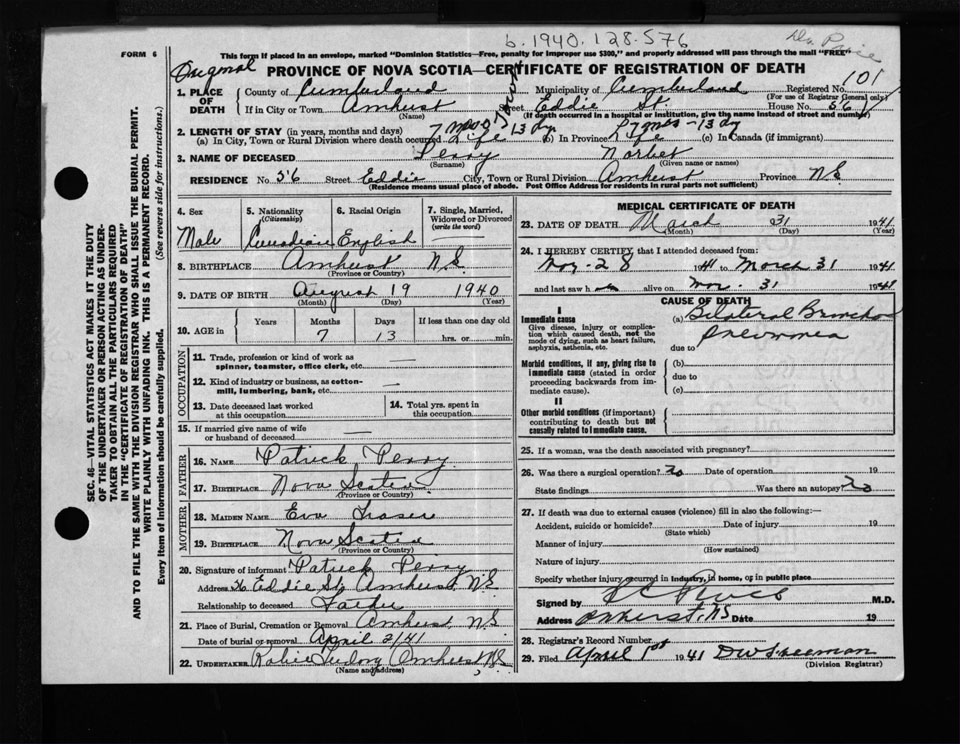 b. 1940. 128. 576
FORM 6
This form if placed in an envelope, marked "Dominion Statistics—Free, penalty for improper use $300," and properly addressed will pass through the mail "FREE"
Original
PROVINCE OF NOVA SCOTIA—CERTIFICATE OF REGISTRATION OF DEATH
101
1. PLACE OF DEATH
County of Cumberland Municipality of Cumberland Registered No.
(For use of Registrar General only)
If in City or Town Amherst Street Eddie St. House No. 56
(Name) (If death occurred in a hospital or institution, give the name instead of street and number)
2. LENGTH OF STAY (in years, months and days)
(a) In City, Town or Rural Division where death occurred Life 7 mos 13 dy (b) In Province Life 7 mos - 13 dy (c) In Canada (if immigrant)
3. NAME OF DECEASED Perry Norbet
(Surname) (Given name or names)
RESIDENCE No. 56 Street Eddie City, Town or Rural Division Amherst Province N.S.
(Residence means usual place of abode. Post Office Address for residents in rural parts not sufficient)
4. Sex
Male
5. Nationality (Citizenship)
Canadian
6. Racial Origin
English
7. Single, Married, Widowed or Divorced (write the word)
—
8. BIRTHPLACE Amherst N.S.
(Province or Country)
9. DATE OF BIRTH August 19 1940
(Month) (Day) (Year)
10. AGE in
Years Months Days If less than one day old
7 13 hrs. or min.
OCCUPATION
11. Trade, profession or kind of work as spinner, teamster, office clerk, etc. —
12. Kind of industry or business, as cotton-mill, lumbering, bank, etc. —
13. Date deceased last worked at this occupation
14. Total yrs. spent in this occupation
15. If married give name of wife or husband of deceased —
FATHER
16. NAME Patrick Perry
17. BIRTHPLACE Nova Scotia
(Province or Country)
MOTHER
18. MAIDEN NAME Eva Fraser
19. BIRTHPLACE Nova Scotia
(Province or Country)
20. Signature of informant Patrick Perry
Address 56 Eddie St, Amherst N.S.
Relationship to deceased Father
21. Place of Burial, Cremation or Removal Amherst N.S.
Date of burial or removal April 2/41
22. UNDERTAKER Amherst N.S.
(Name and address)
MEDICAL CERTIFICATE OF DEATH
23. DATE OF DEATH March 31 1941
(Month) (Day) (Year)
24. I HEREBY CERTIFY, that I attended deceased from:
28 1941 to March 31 1941
and last saw h alive on 31 1941
CAUSE OF DEATH
I
Immediate cause
Give disease, injury or complication which caused death, not the mode of dying, such as heart failure, asphyxia, asthenia, etc.
(a) Bilateral Broncho
Pneumonia
due to
Morbid conditions, if any, giving rise to immediate cause (stated in order proceeding backwards from immediate cause).
(b)
due to
(c)
II
Other morbid conditions (if important) contributing to death but not causally related to immediate cause.
25. If a woman, was the death associated with pregnancy?
26. Was there a surgical operation? No Date of operation 19
State findings Was there an autopsy? No
27. If death was due to external causes (violence) fill in also the following:—
Accident, suicide or homicide? Date of injury 19
(State which)
Manner of injury
(How sustained)
Nature of injury
Specify whether injury occurred in industry, in home, or in public place
Signed by M.D.
Address Amherst, NS Date 19
28. Registrar's Record Number
29. Filed April 1st 1941 DW Freeman
(Division Registrar)
SEC. 46—VITAL STATISTICS ACT MAKES IT THE DUTY
OF THE UNDERTAKER OR PERSON ACTING AS UNDER-
TAKER TO OBTAIN ALL THE PARTICULARS REQUIRED
IN THE "CERTIFICATE OF REGISTRATION OF DEATH"
AND TO FILE THE SAME WITH THE DIVISION REGISTRAR WHO SHALL ISSUE THE BURIAL PERMIT.
WRITE PLAINLY WITH UNFADING INK. THIS IS A PERMANENT RECORD.
Every item of information should be carefully supplied. (See reverse side for instructions.)